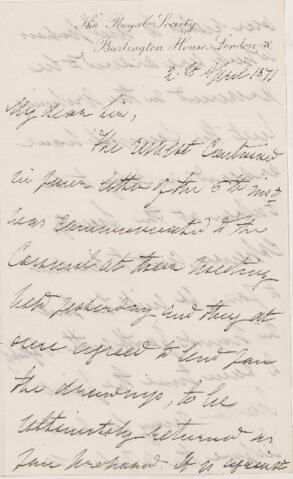 The Royal Society
Burlington House, London. W.
April 1871
My dear Sir,
The request contained
in your letter of the 5th inst
was communicated to the
Council at their meeting
held yesterday and they at
once agreed to lend you
the drawings, to be
ultimately returned as
you
It is against